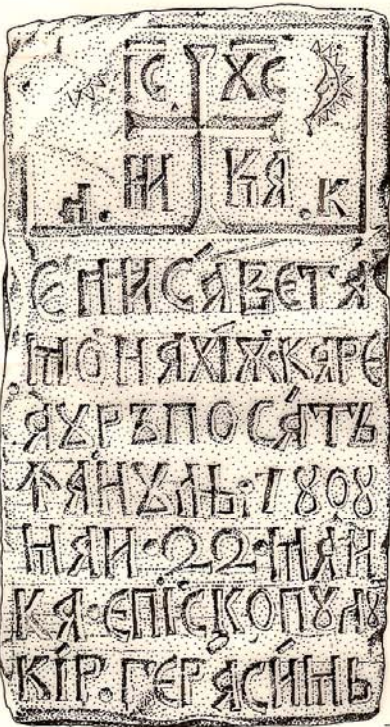 ІС ХС
НИ КА
. К
ЄЛИСАВЕТА
МОНАХІѦ·КАРЕ
АꙋРЪПОСАТЪ
ꙞАНꙋЛЬ·1808
МАИ·22·МАИ
КА·ЕПІСКОПꙋЛꙋ
КІР·ГЕРАСИМЬ